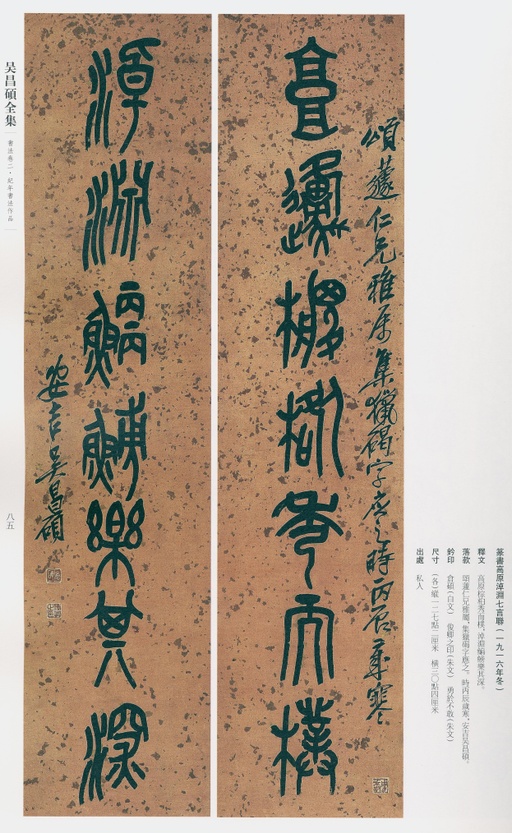 篆書高原淖淵七言聯（一九一六年冬）
釋文 高原 秀而樸，淖淵鯿 樂其深。
落款 頌蓮仁兄雅屬，集獵碣字應之。時丙辰歲寒，安吉吳昌碩。
鈐印 倉碩（白文） 俊卿之印（朱文） 勇於不敢（朱文）
尺寸 （各）縱一二七點二厘米 橫三〇點四厘米
出處 私人
頌蓮仁兄雅屬集獵碣字應之時丙辰歲寒
高邍 秀而樸
淖淵鯿 樂其深
安吉吳昌碩
吳昌碩全集
書法卷二·紀年書法作品
八五